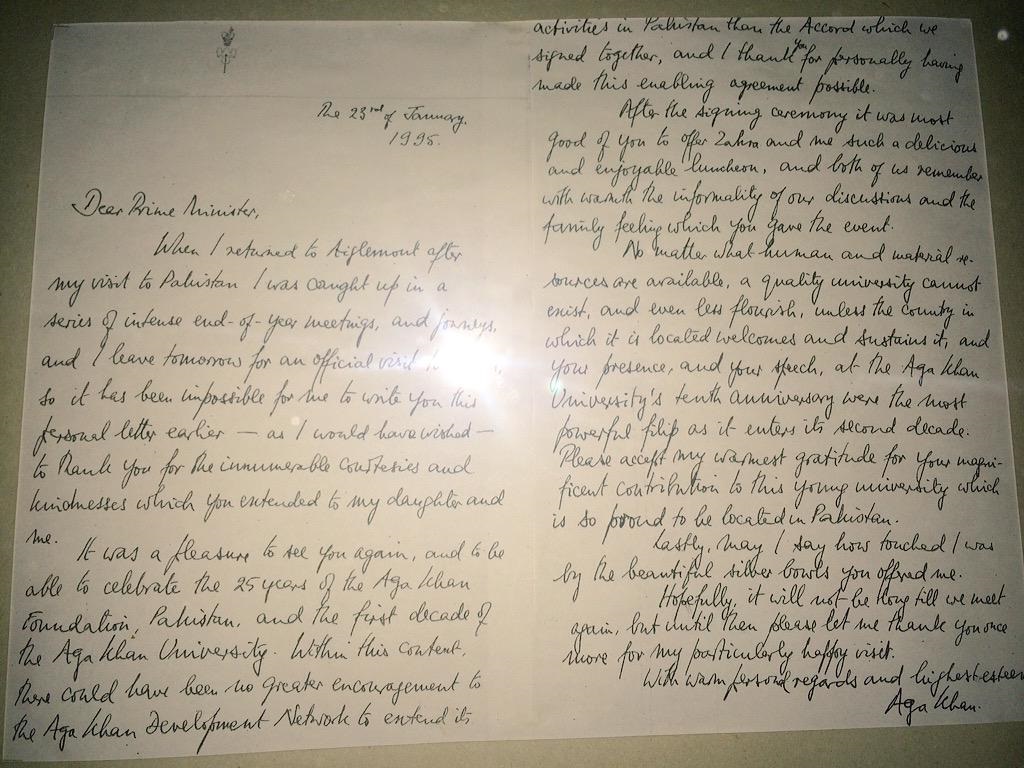 The 23rd of January.
1995.
Dear Prime Minister,
When I returned to Aiglemont after
my visit to Pakistan I was caught up in a
series of intense end-of-year meetings, and journeys,
and I leave tomorrow for an official visit to
so it has been impossible for me to write you this
personal letter earlier — as I would have wished —
to thank you for the innumerable courtesies and
kindnesses which you extended to my daughter and
me.
It was a pleasure to see you again, and to be
able to celebrate the 25 years of the Aga Khan
Foundation, Pakistan, and the first decade of
the Aga Khan University. Within this context,
there could have been no greater encouragement to
the Aga Khan Development Network to extend its
activities in Pakistan than the Accord which we
signed together, and I thank you for personally having
made this enabling agreement possible.
After the signing ceremony it was most
good of you to offer Zahra and me such a delicious
and enjoyable luncheon, and both of us remember
with warmth the informality of our discussions and the
family feeling which you gave the event.
No matter what human and material re-
sources are available, a quality university cannot
exist, and even less flourish, unless the country in
which it is located welcomes and sustains it, and
your presence, and your speech, at the Aga Khan
University's tenth anniversary were the most
powerful filip as it enters its second decade.
Please accept my warmest gratitude for your magni-
ficent contribution to this young university which
is so proud to be located in Pakistan.
Lastly, may I say how touched I was
by the beautiful silver bowls you offered me.
Hopefully, it will not be long till we meet
again, but until then please let me thank you once
more for my particularly happy visit.
With warm personal regards and highest esteem
Aga Khan.